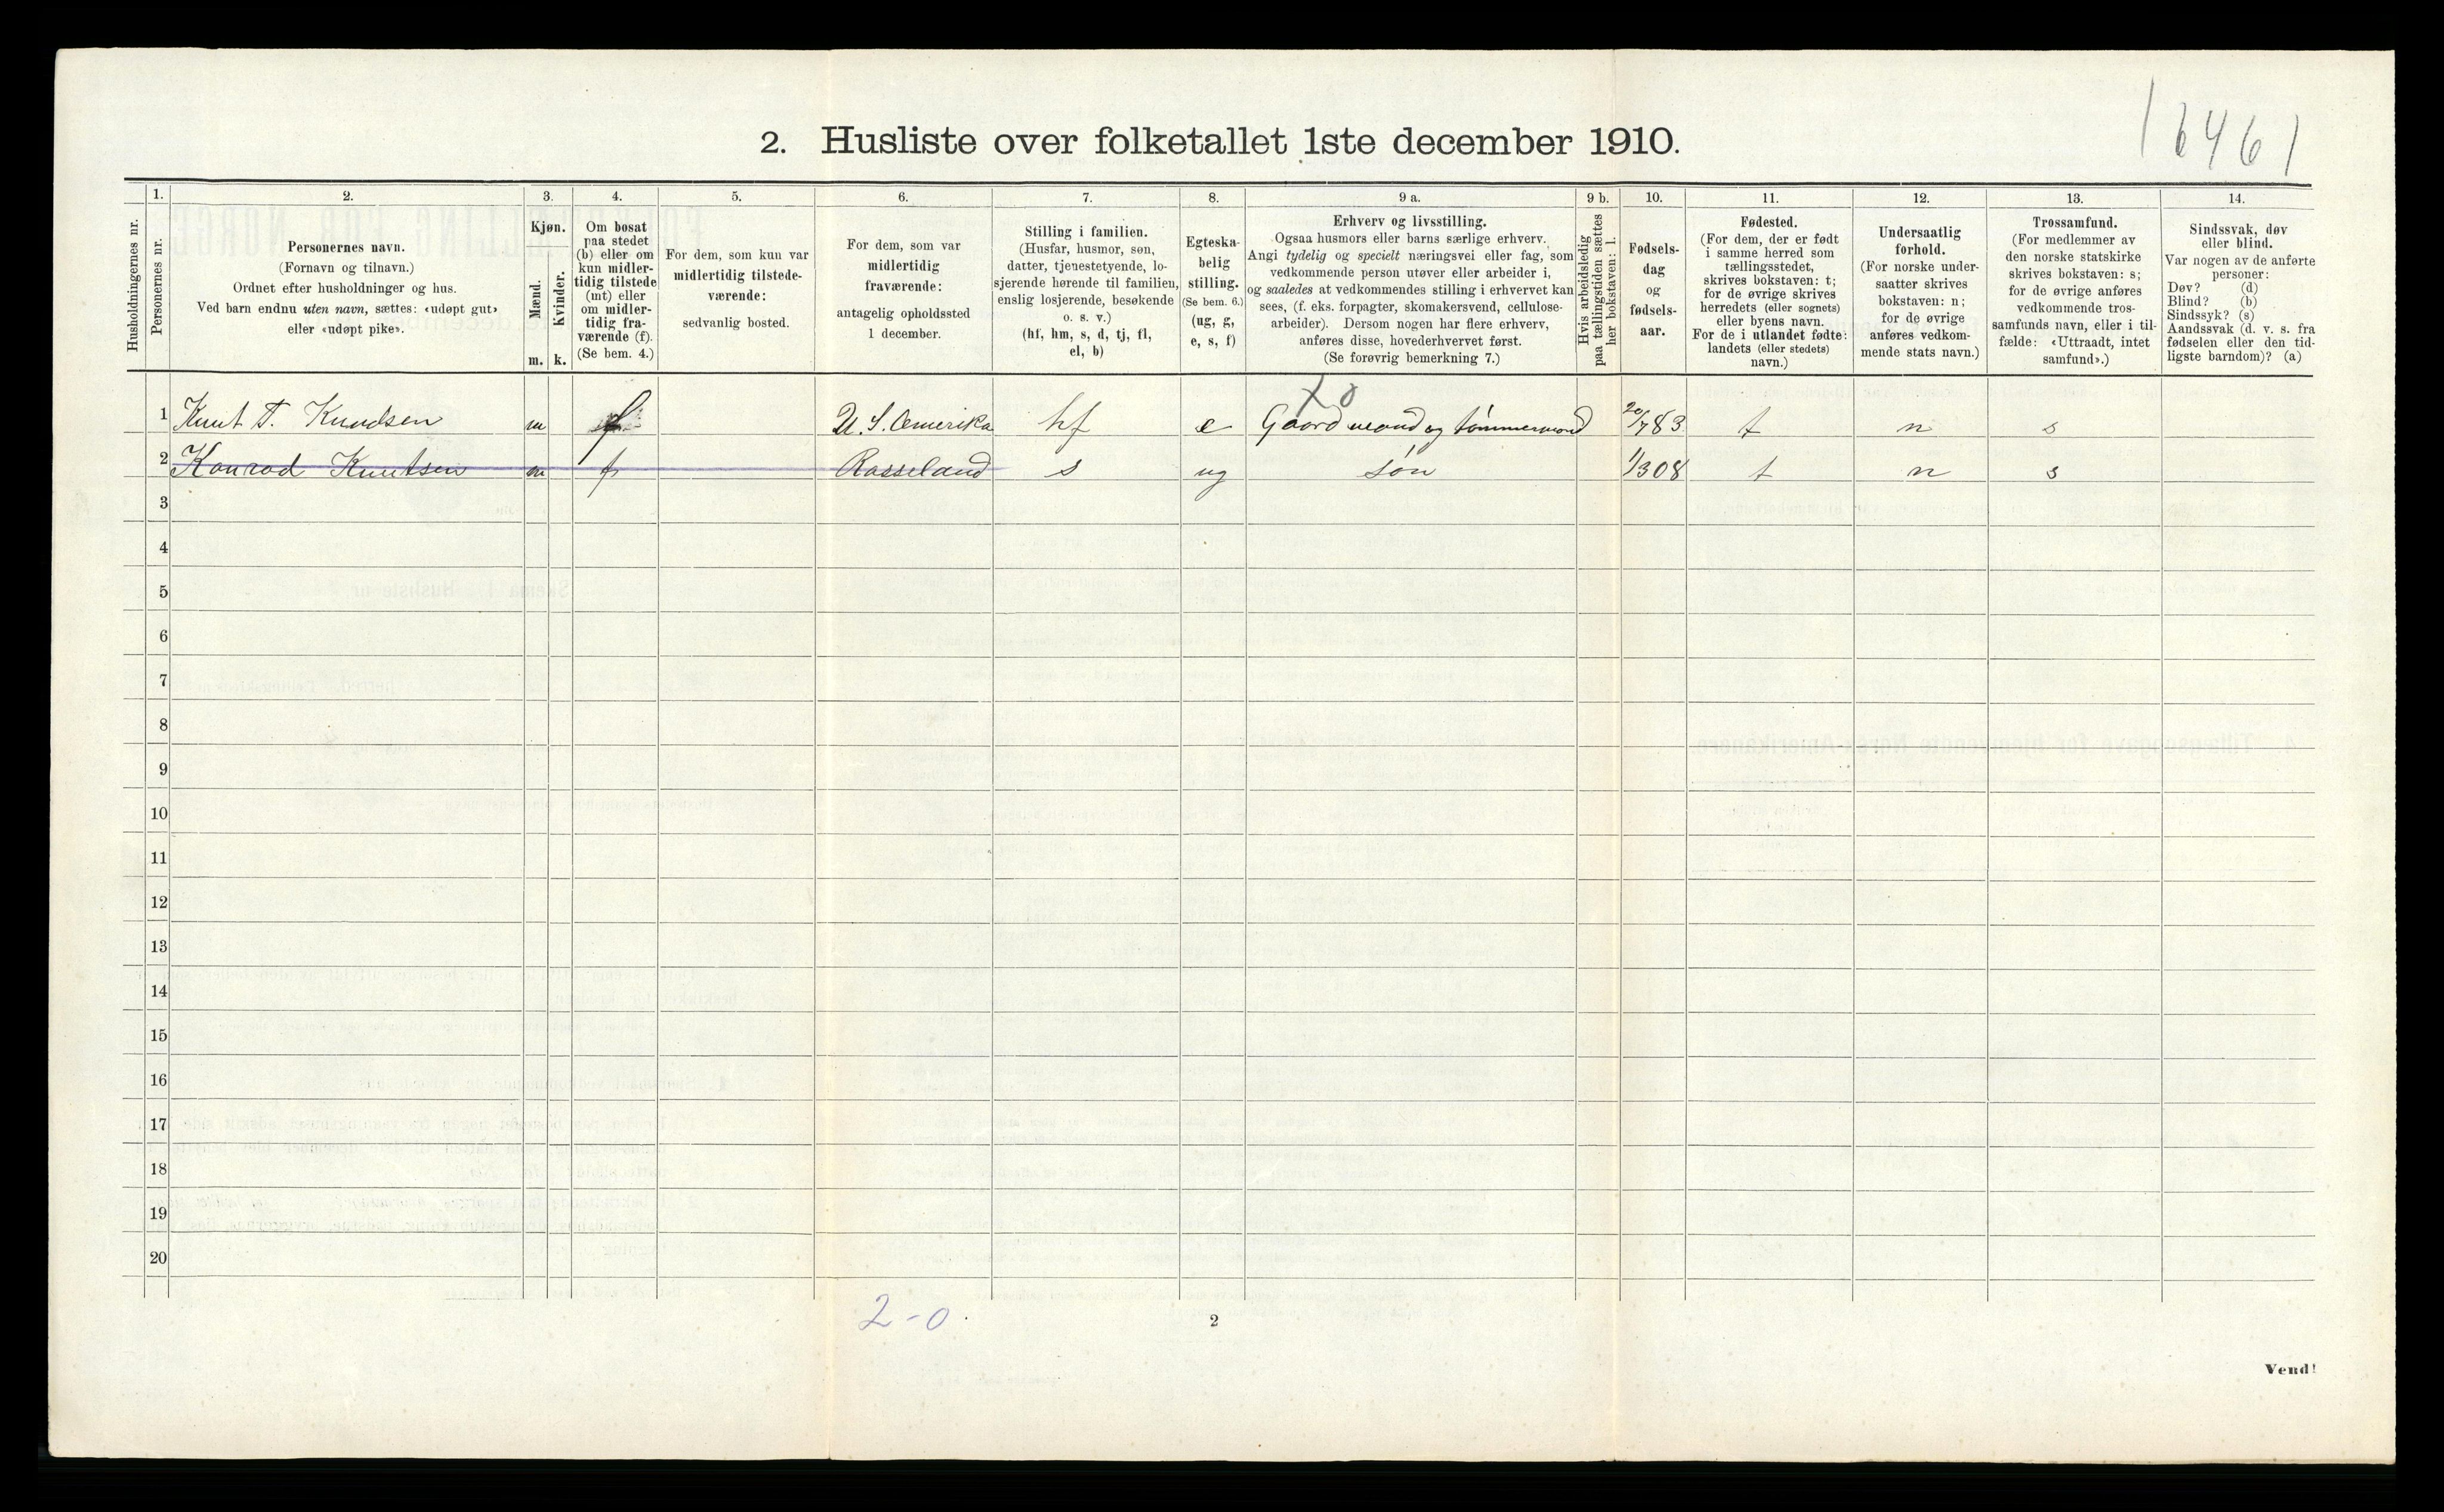 16461
2. Husliste over folketallet 1ste december 1910.
Husholdningernes nr.
1.
Personernes nr.
2.
Personernes navn.
(Fornavn og tilnavn.)
Ordnet efter husholdninger og hus.
Ved barn endnu uten navn, sættes: «udøpt gut»
eller «udøpt pike».
3.
Kjøn.
Mænd.
Kvinder.
m. k.
4.
Om bosat
paa stedet
(b) eller om
kun midler-
tidig tilstede
(mt) eller
om midler-
tidig fra-
værende (f).
(Se bem. 4.)
5.
For dem, som kun var
midlertidig tilstede-
værende:
sedvanlig bosted.
6.
For dem, som var
midlertidig
fraværende:
antagelig opholdssted
1 december.
7.
Stilling i familien.
(Husfar, husmor, søn,
datter, tjenestetyende, lo-
sjerende hørende til familien,
enslig losjerende, besøkende
o. s. v.)
(hf, hm, s, d, tj, fl,
el, b)
8.
Egteska-
belig
stilling.
(Se bem. 6.)
(ug, g,
e, s, f)
9 a.
Erhverv og livsstilling.
Ogsaa husmors eller barns særlige erhverv.
Angi tydelig og specielt næringsvei eller fag, som
vedkommende person utøver eller arbeider i,
og saaledes at vedkommendes stilling i erhvervet kan
sees, (f. eks. forpagter, skomakersvend, cellulose-
arbeider). Dersom nogen har flere erhverv,
anføres disse, hovederhvervet først.
(Se forøvrig bemerkning 7.)
9 b.
Hvis arbeidsledig
paa tællingstiden sættes
her bokstaven: l.
10.
Fødsels-
dag
og
fødsels-
aar.
11.
Fødested.
(For dem, der er født
i samme herred som
tællingsstedet,
skrives bokstaven: t;
for de øvrige skrives
herredets (eller sognets)
eller byens navn.
For de i utlandet fødte:
landets (eller stedets)
navn.)
12.
Undersaatlig
forhold.
(For norske under-
saatter skrives
bokstaven: n;
for de øvrige
anføres vedkom-
mende stats navn.)
13.
Trossamfund.
(For medlemmer av
den norske statskirke
skrives bokstaven: s;
for de øvrige anføres
vedkommende tros-
samfunds navn, eller i til-
fælde: «Uttraadt, intet
samfund».)
14.
Sindssvak, døv
eller blind.
Var nogen av de anførte
personer:
Døv? (d)
Blind? (b)
Sindssyk? (s)
Aandssvak (d. v. s. fra
fødselen eller den tid-
ligste barndom)? (a)
1 Knut T. Knudsen m f U. S. Amerika hf e Gaardmand og tømmermand 20/7 83 t n s
2 Konrad Knutsen m f Rosseland s ug søn 1/3 08 t n s
3
4
5
6
7
8
9
10
11
12
13
14
15
16
17
18
19
20
2-0.
2
Vend!